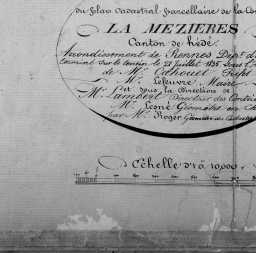 du plan Cadastral parcellaire de la Co
LA MEZIERES
Canton de hédé.
Arrondissement de Rennes Dépt. d
terminé sur le terrein le 21 juillet 1835 sous l'
de Mr. Cahouet Préfet
Mr. Lefeuvre, Maire
et sous la direction de
Mr. Lambert Directeur des Contrib
Mr. Lesné Géomètre en
par Mr. Roger Géomètre du Cadastre
Echelle d'1 à 10,000